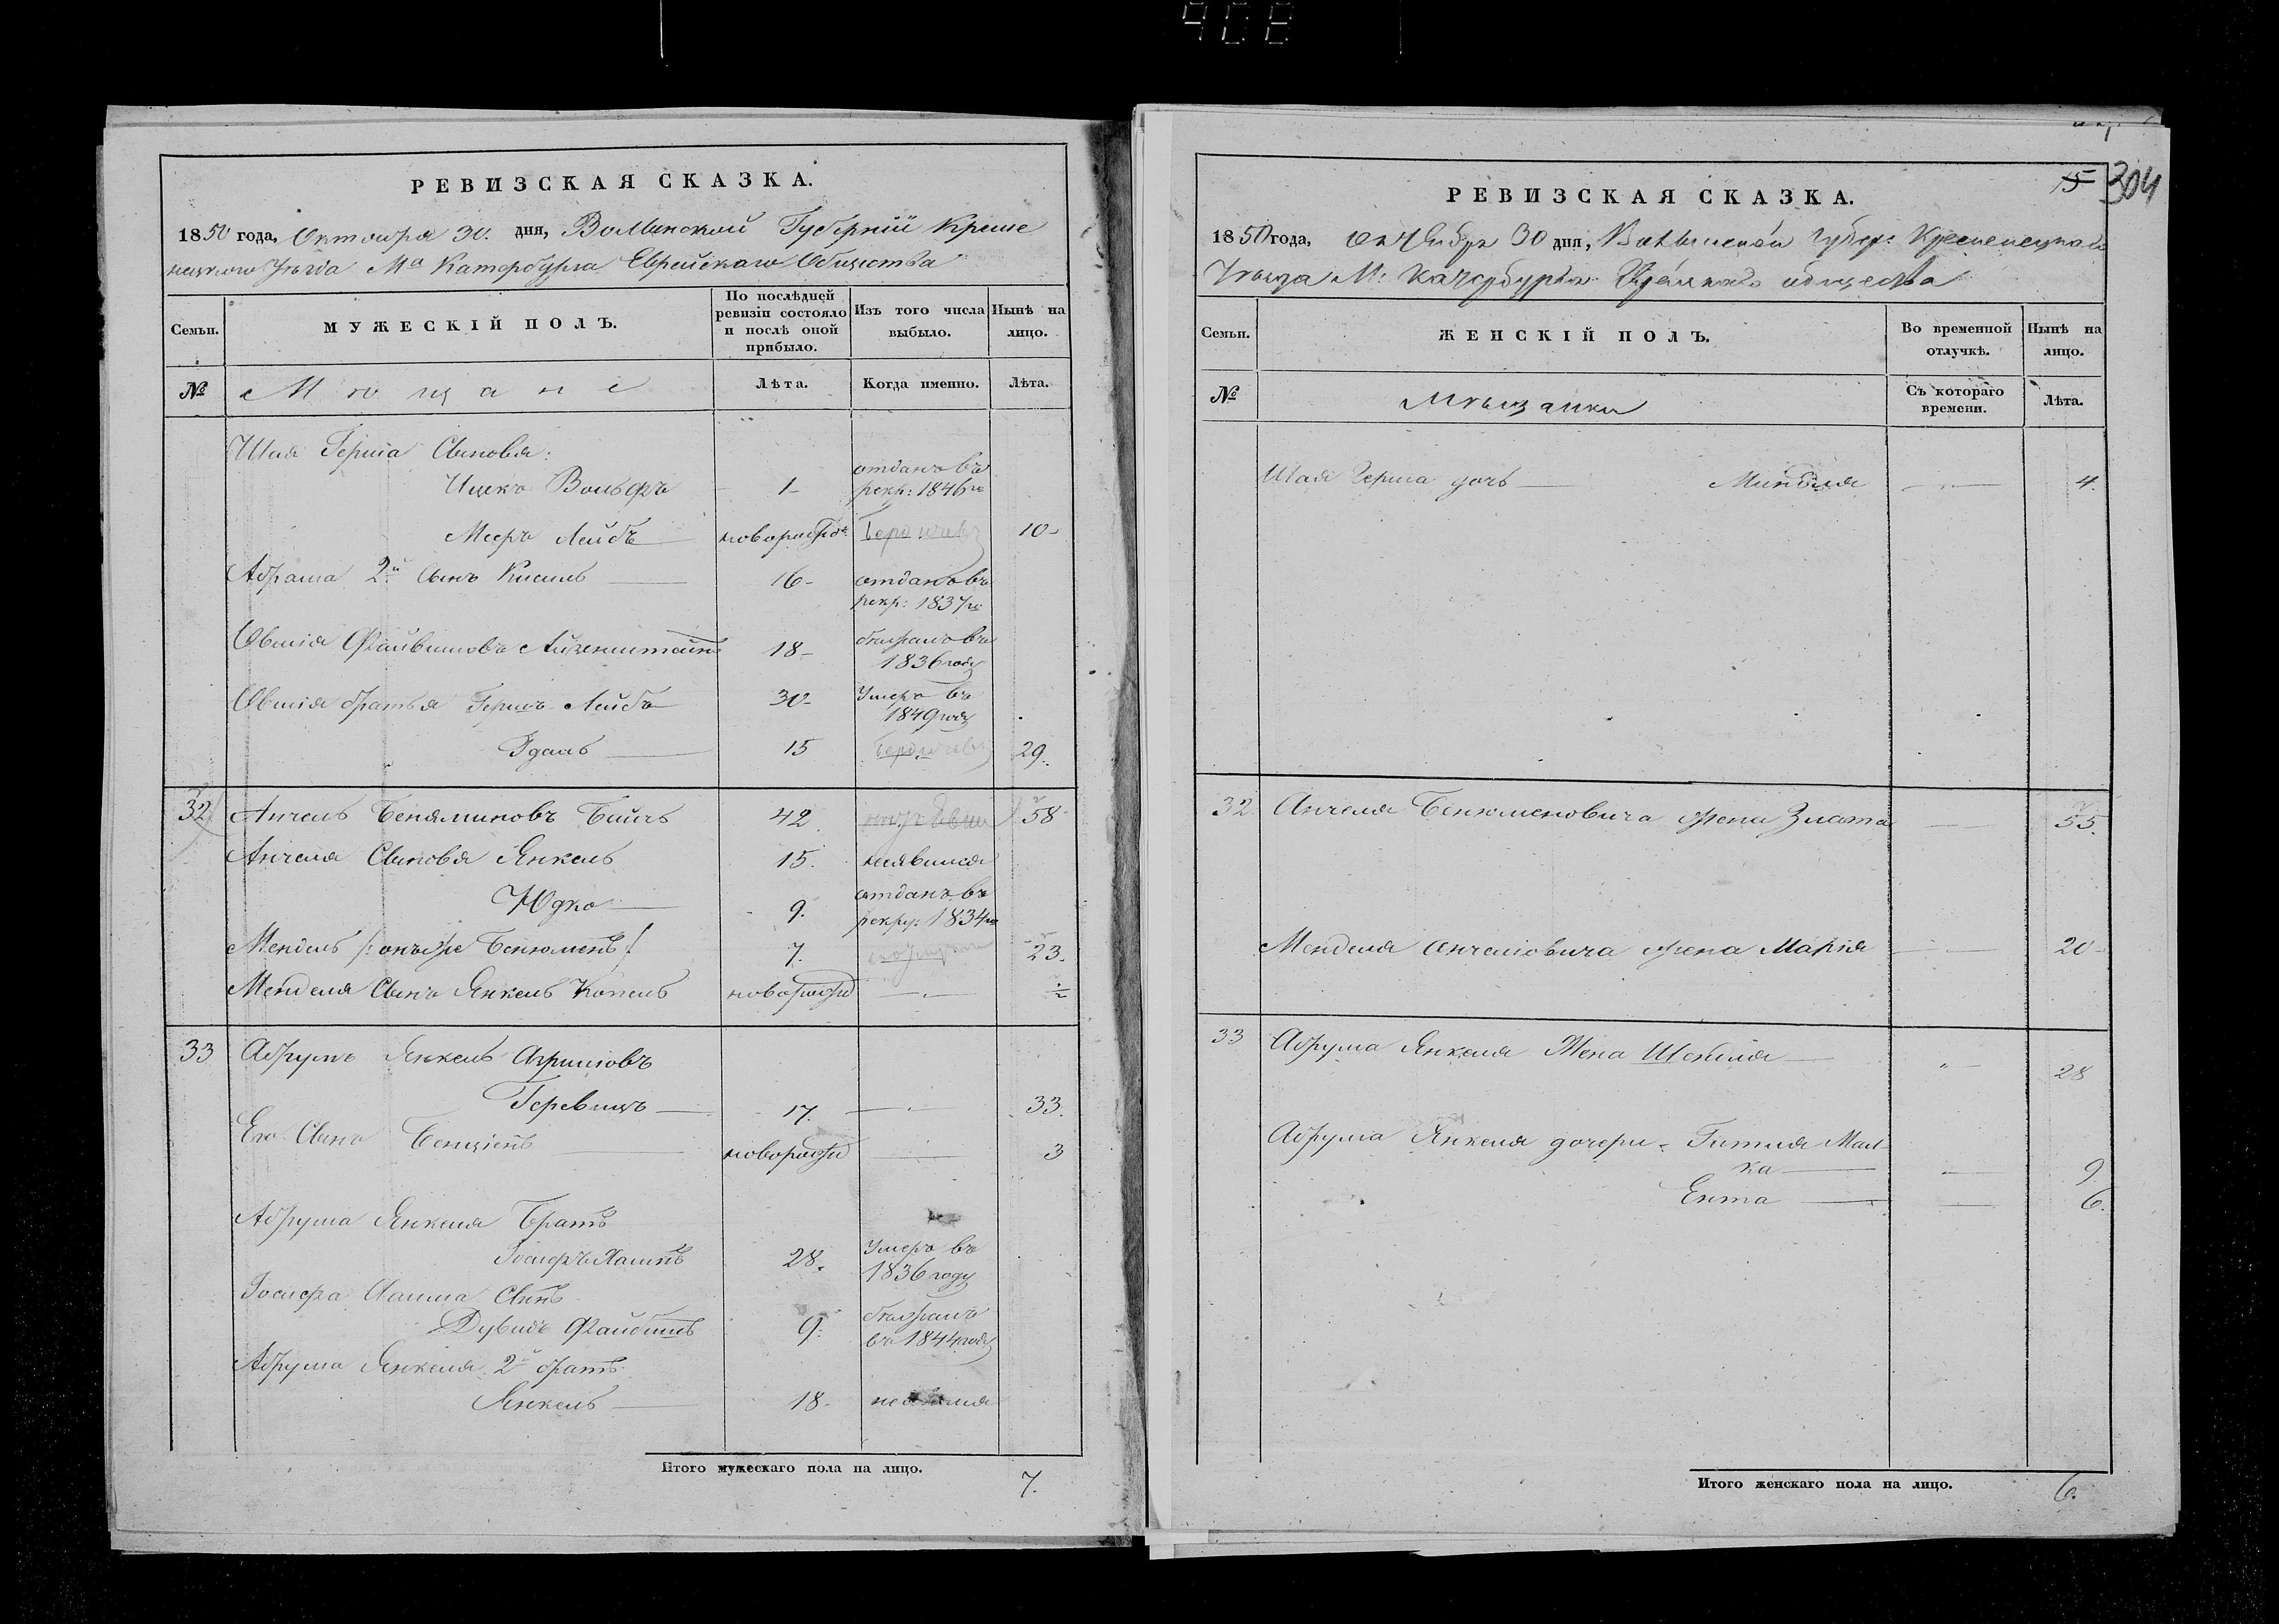 408
РЕВИЗСКАЯ СКАЗКА.
1850 года, Октября 30. дня, Волынской Губерніи Креме
нецкого Уѣзда Мᵃ Катербурга Еврейскаго Общества
Семьи.
МУЖЕСКІЙ ПОЛЪ.
По послѣдней
ревизіи состояло
и послѣ оной
прибыло.
Изъ того числа
выбыло.
Нынѣ на
лицо.
№
Мѣщане
Лѣта.
Когда именно.
Лѣта.
Шая Герша Сыновья:
Ицекъ Вольфъ 1 отданъ въ
рекр: 1846го
Мееръ Лейбъ новорожд. 10
Абрама 2й Сынъ Кисиль 16 отданъ въ
рекр: 1837го
Овшія Файвишовъ Айзенштейнъ 18 бѣжалъ въ
1836 году
Овшія братья Гершъ Лейбъ 30 Умеръ въ
1849 году
Удаль 15 29.
32 Анчель Беняминовъ Байчъ 42 58
Анчеля Сыновья Янкель 15. неявился
Юдко 9. отданъ въ
рекру: 1834го
Мендель /: онъ же Бенюмень :/ 7. 23.
Менделя Сынъ Янкель Копель новорожд ½
33 Абрумъ Янкель Аврумовъ
Геревицъ 17. 33.
Его Сынъ Бенціенъ новорожд 3
Абрума Янкеля Братъ
Іосифъ Хаимъ 28. Умеръ въ
1836 году
Іосифа Хаима Сынъ
Дувидъ Файбишъ 9. бѣжалъ
въ 1844 году
Абрума Янкеля 2й братъ
Янкель 18.
Итого мужескаго пола на лицо. 7.
15 304
РЕВИЗСКАЯ СКАЗКА.
1850 года, октября 30 дня, Волынской Губер: Кременецкаго
Уѣзда М: Катербурга Еврейскаго общества
Семьи.
ЖЕНСКІЙ ПОЛЪ.
Во временной
отлучкѣ.
Нынѣ на
лицо.
№
Мѣщанки
Съ котораго
времени.
Лѣта.
Шая Герша дочь Миндля 4.
32 Анчеля Бенюменовича жена Злота 55.
Менделя Анчеловича жена Марія 20
33 Абрума Янкеля Жена Шейндля 28
Абрума Янкеля дочери Гитля Мал-
ка 9
Ента 6.
Итого женскаго пола на лицо. 6.